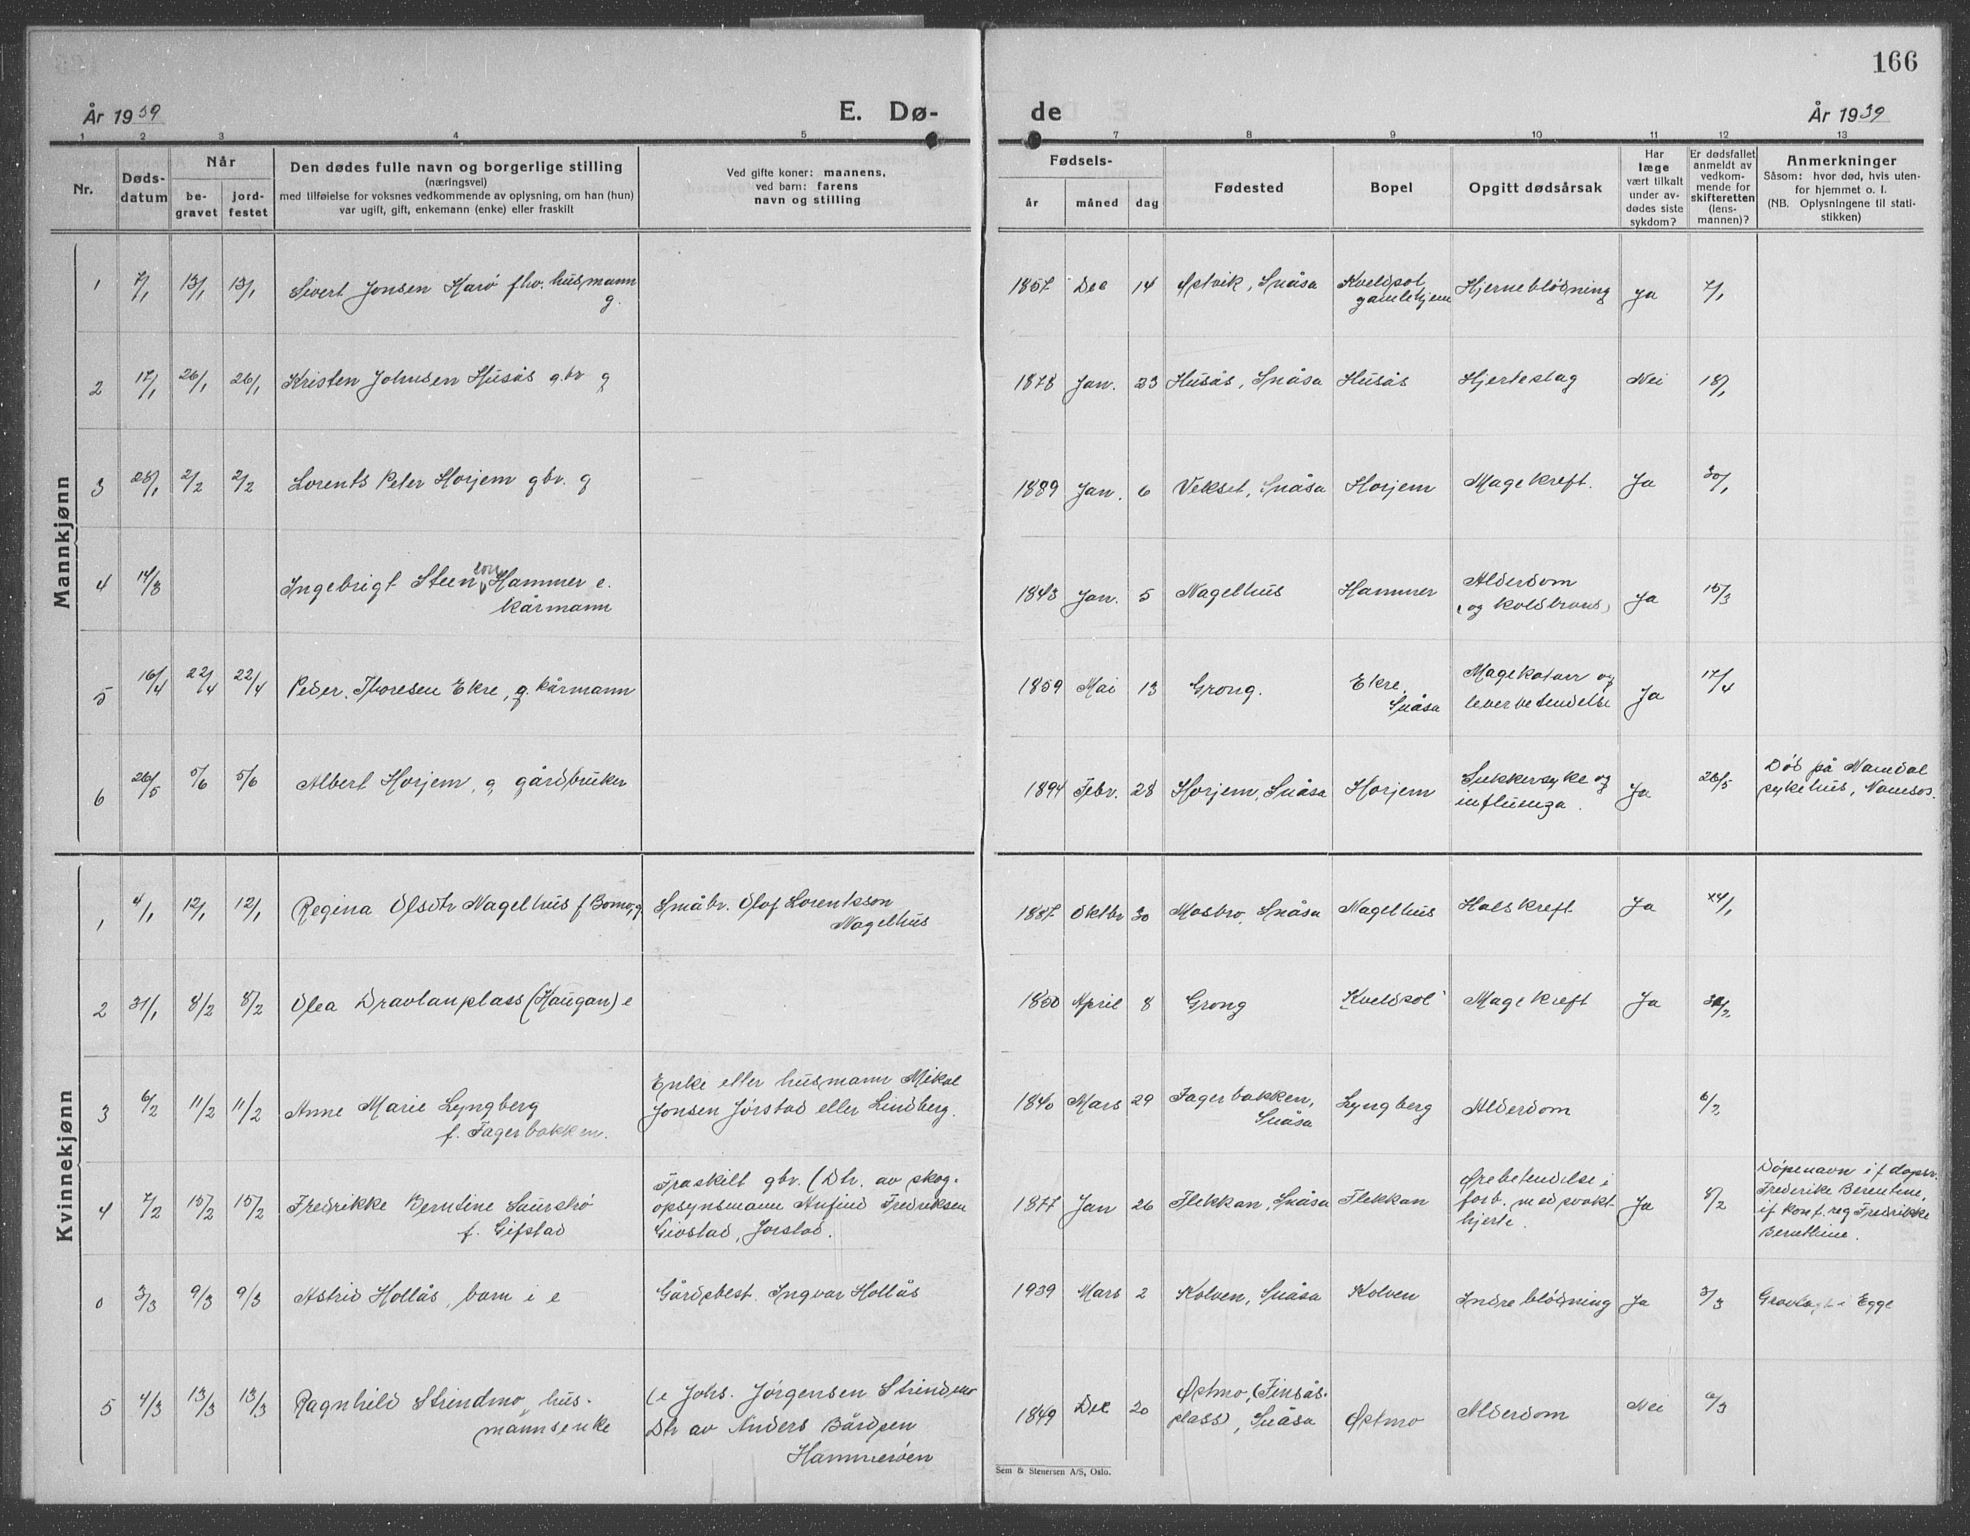 166
År 1939
E. Dø-
de
År 1939
1 2 3 4 5 7 8 9 10 11 12 13
Nr.
Døds-
datum
Når
be-
gravet
jord-
festet
Den dødes fulle navn og borgerlige stilling
(næringsvei)
med tilføielse for voksnes vedkommende av oplysning, om han (hun)
var ugift, gift, enkemann (enke) eller fraskilt
Ved gifte koner: mannens,
ved barn: farens
navn og stilling
Fødsels-
år måned dag
Fødested
Bopel
Opgitt dødsårsak
Har
læge
vært tilkalt
under av-
dødes siste
sykdom?
Er dødsfallet
anmeldt av
vedkom-
mende for
skifteretten
(lens-
mannen)?
Anmerkninger
Såsom: hvor død, hvis uten-
for hjemmet o. l.
(NB. Oplysningene til stati-
stikken)
Mannkjønn
1 7/1 13/1 13/1 Sivert Jonsen Karø fhv. husmann
g.
1857 Dec 14 Østvik, Snåsa Kveldsol
gamlehjem Hjerneblødning Ja 7/1
2 17/1 26/1 26/1 Kristen Johnsen Husås gbr g
1878 Jan. 23 Husås, Snåsa Husås Hjerteslag Nei 18/1
3 28/1 2/2 2/2 Lorents Peter Horjem gbr. g
1889 Jan. 6 Vekset, Snåsa Horjem Magekreft. Ja 30/1
4 14/3 Ingebrigt Steen Hammer e.
kårmann
1843 Jan. 5 Nagelhus Hammer Alderdom
(og koldbrand) Ja 15/3
5 16/4 22/4 22/4 Peder Thoresen Ekre, g. kårmann
1859 Mai 13 Grong. Ekre,
Snåsa Magekatarr og
leverbetendelse Ja 17/4
6 26/5 5/6 5/6 Albert Horjem, g gårdbruker
1894 Febr. 28 Horjem, Snåsa Horjem Sukkersyke og
influenza. Ja 26/5 Død på Namdal
sykehus, Namsos.
Kvinnekjønn
1 4/1 12/1 12/1 Regina Olsdtr Nagelhus f Bomo, g
Småbr. Olof Lorentsson
Nagelhus
1887 Oktbr 30 Mosbro, Snåsa Nagelhus Halskreft Ja
2 31/1 8/2 8/2 Olea Dravlanplass (Haugan) e
1850 April 8 Grong Kveldsol Magekreft Ja
3 6/2 11/2 11/2 Anne Marie Lyngberg
f. Fagerbakken.
Enke etter husmann Mikal
Jonsen Jørstad eller Lindberg.
1840 Mars 29 Fagerbakken,
Snåsa Lyngberg Alderdom 6/2
4 7/2 15/2 15/2 Fredrikke Berntine Saurshø
f. Gifstad
Fraskilt gbr. (Dtr. av skog-
opsynsmann Anfind Fredriksen
Jørstad.
1877 Jan 26 Flekkan, Snåsa Flekkan Ørebetendelse i
forb. med svakt
hjerte. Ja 8/2 Døpenavn if dåpsr.
Frederike Berentine,
if konf. reg Fredrikke
Bernthine.
0 3/3 9/3 9/3 Astrid Hollås, barn i e
Gårdsbest. Ingvar Hollås
1939 Mars 2 Kolven, Snåsa Kolven Indre blødning Ja 3/3 Gravlagt i Egge
5 4/3 13/3 13/3 Ragnhild Strindmo, hus-
mannsenke
(e Johs. Jørgensen Strindmo
Dtr av Anders Bårdsen
Hammerøen
1849 Dec 20 Østmo, (Finsås-
plass), Snåsa Østmo Alderdom Nei 6/3
Sem & Stenersen A/S, Oslo.